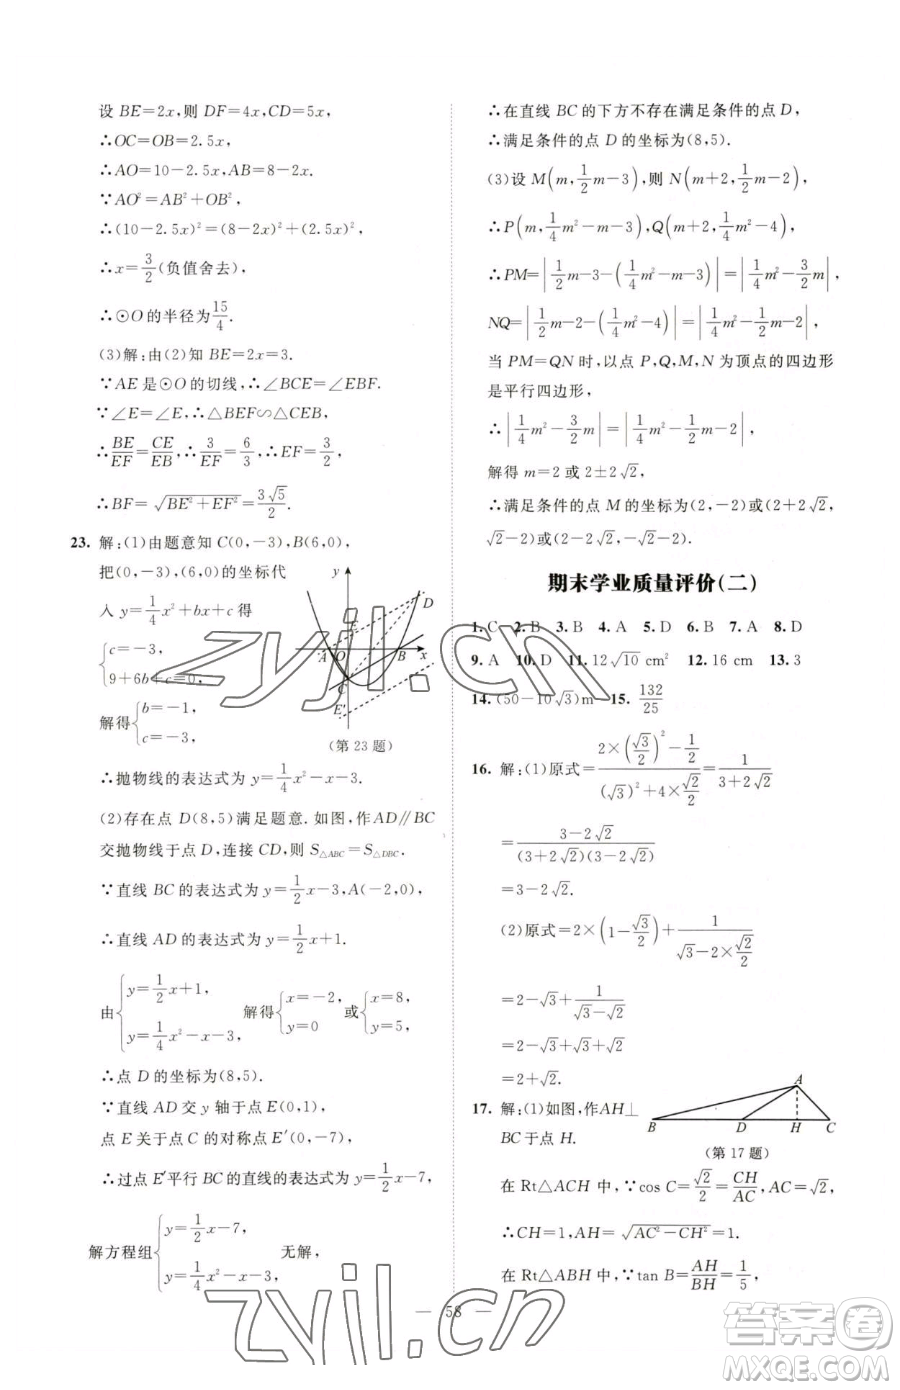 设 BE=2x,则 DF=4x,CD=5x,
∴OC=OB=2.5x,
∴AO=10-2.5x,AB=8-2x,
∵AO²=AB²+OB²,
∴(10-2.5x)²=(8-2x)²+(2.5x)²,
∴x=3/2(负值舍去),
∴⊙O 的半径为15/4.
(3)解:由(2)知 BE=2x=3.
∵AE 是⊙O 的切线,∴∠BCE=∠EBF.
∵∠E=∠E,∴△BEF∽△CEB,
∴BE/EF=CE/EB,∴3/EF=6/3,∴EF=3/2,
∴BF=√(BE²+EF²)=3√5/2.
23. 解:(1)由题意知 C(0,-3),B(6,0),
把(0,-3),(6,0)的坐标代
入 y=1/4x²+bx+c 得
{c=-3,
9+6b+c=0,
解得{b=-1,
c=-3,
(第 23 题)
∴抛物线的表达式为 y=1/4x²-x-3.
(2)存在点 D(8,5)满足题意. 如图,作AD∥BC
交抛物线于点 D,连接 CD,则 S△ABC=S△DBC.
∵直线 BC 的表达式为 y=1/2x-3,A(-2,0),
∴直线 AD 的表达式为 y=1/2x+1.
由{y=1/2x+1,
y=1/4x²-x-3,
解得{x=-2,
y=0
或{x=8,
y=5,
∴点 D 的坐标为(8,5).
∵直线 AD 交 y 轴于点 E(0,1),
点 E 关于点 C 的对称点 E′(0,-7),
∴过点 E′平行 BC 的直线的表达式为 y=1/2x-7,
解方程组{y=1/2x-7,
y=1/4x²-x-3,
无解,
∴在直线 BC 的下方不存在满足条件的点 D,
∴满足条件的点 D 的坐标为(8,5).
(3)设 M(m,1/2m-3),则 N(m+2,1/2m-2),
∴P(m,1/4m²-m-3),Q(m+2,1/4m²-4),
∴PM=|1/2m-3-(1/4m²-m-3)|=|1/4m²-3/2m|,
NQ=|1/2m-2-(1/4m²-4)|=|1/4m²-1/2m-2|,
当 PM=QN 时,以点 P,Q,M,N 为顶点的四边形
是平行四边形,
∴|1/4m²-3/2m|=|1/4m²-1/2m-2|,
解得 m=2 或 2±2√2,
∴满足条件的点 M 的坐标为(2,-2)或(2+2√2,
√2-2)或(2-2√2,-√2-2).
期末学业质量评价(二)
1. C 2. B 3. B 4. A 5. D 6. B 7. A 8. D
9. A 10. D 11. 12√10 cm² 12. 16 cm 13. 3
14. (50-10√3)m 15. 132/25
16. 解:(1)原式=(2×(√3/2)²-1/2)/((√3)²+4×√2/2)=1/(3+2√2)
=(3-2√2)/((3+2√2)(3-2√2))
=3-2√2.
(2)原式=2×(1-√3/2)+1/(√3-2×√2/2)
=2-√3+1/(√3-√2)
=2-√3+√3+√2
=2+√2.
17. 解:(1)如图,作AH⊥
BC于点 H.
A
B D H C
(第 17 题)
在 Rt△ACH 中,∵cos C=√2/2=CH/AC,AC=√2,
∴CH=1,AH=√(AC²-CH²)=1.
在 Rt△ABH 中,∵tan B=AH/BH=1/5,
— 58 —
zyjl.cn
zyjl.cn
答案圈
MXQE.COM